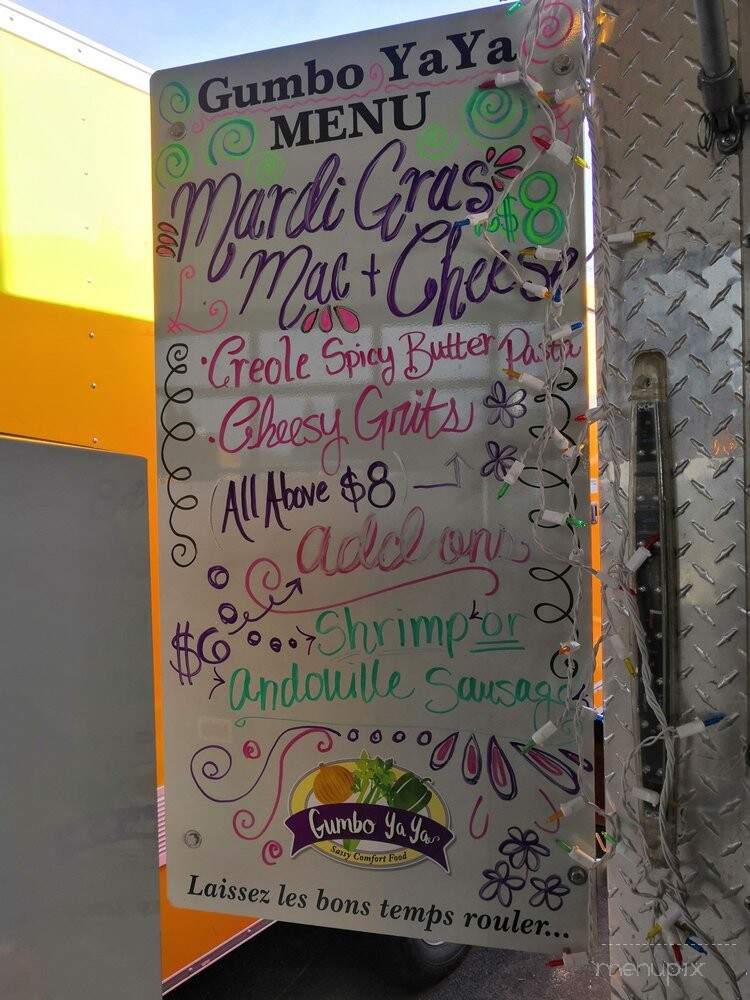 Gumbo YaYa
MENU
Mardi Gras $8
Mac + Cheese
· Creole Spicy Butter Pasta
· Cheesy Grits
(All Above $8)
add ons
$6 Shrimp or
Andouille Sausage
Gumbo YaYa
Sassy Comfort Food
Laissez les bons temps rouler...
menupix